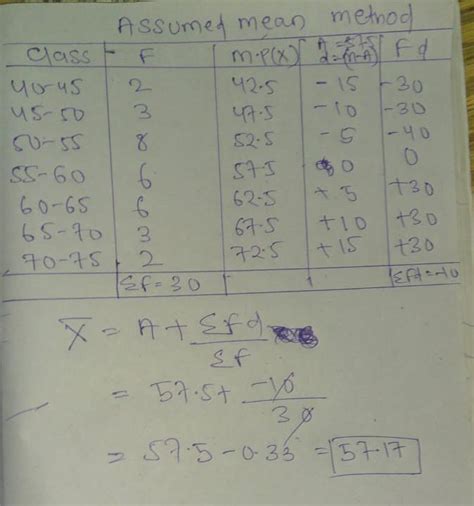 Assumed mean method
Class F M.P(X) A = 57.5 d=(m-A) Fd
40-45 2 42.5 -15 -30
45-50 3 47.5 -10 -30
50-55 8 52.5 -5 -40
55-60 6 57.5 0 0
60-65 6 62.5 +5 +30
65-70 3 67.5 +10 +30
70-75 2 72.5 +15 +30
Σf=30 Σfd=-10
X̄ = A + Σfd / Σf
= 57.5 + -10 / 30
= 57.5 - 0.33 = 57.17